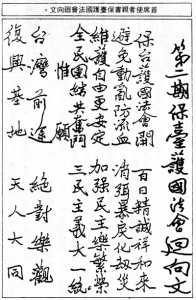 首席使者親書保臺護國法會迴向文。
第二期保臺護國法會迴向文
保台護國法會開 百日精誠祥和來
避免動亂防流血 消弭暴戾化劫災
維護自由更安定 加強民主樂繁榮
全民團結共奮鬥 三民主義大一統
惟願
台灣前途 絕對樂觀
復興基地 天人大同